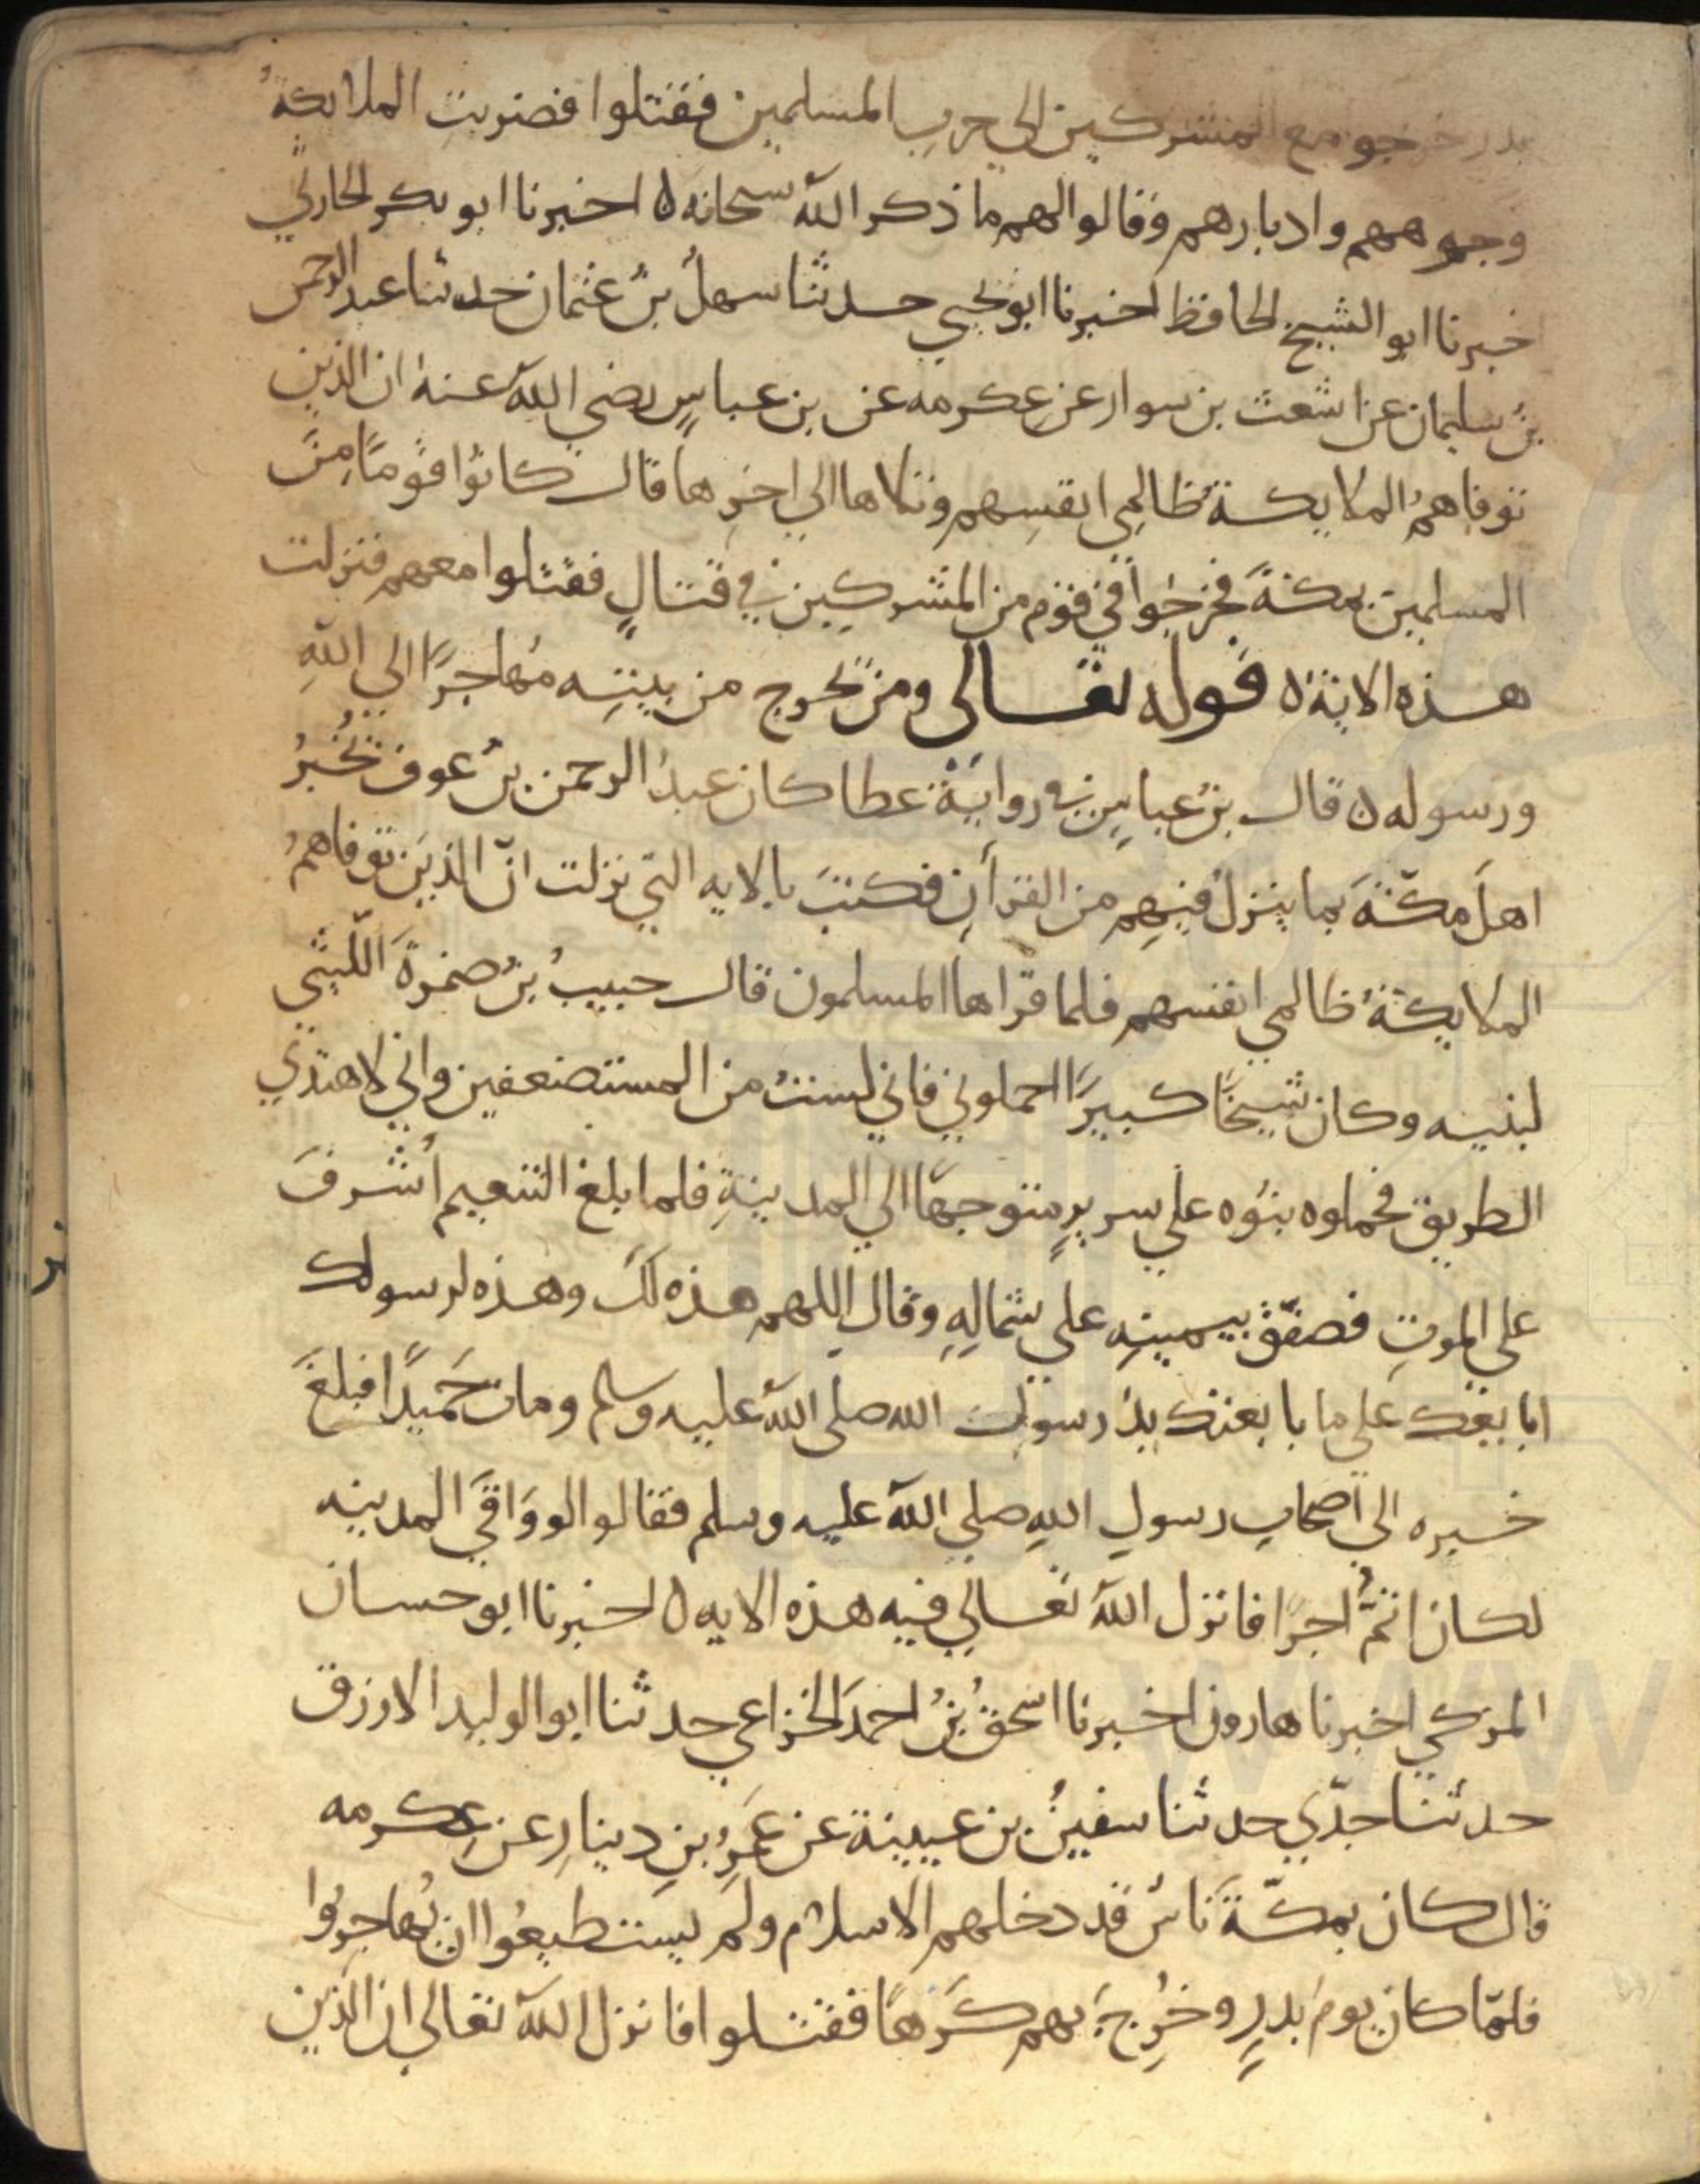 بدر خرجو مع المشركين الي حرب المسلمين فقتلوا فضربتِ الملائكةُ
وجوههم وادبارهم وقالوا لهم ما ذكر الله سبحانه ه اخبرنا ابو بكر الحارثي
خبرنا ابو الشيخ الحافظ اخبرنا ابو يحيي حدثنا سهلُ بنُ عثمان حدثنا عبد الرحمن
بنُ سليمان عن اشعث بن سوار عن عكرمه عن بن عباسٍ رضي الله عنهُ ان الذين
توفاهمُ الملايكةُ ظالمِي انفسِهم وتلاها الي اخرِها قال كانوُا قومًا مِنَ
المسلمين بمكةَ فخرجُوا في قوم من المشركِين في قتالٍ فقتلوا معهم فنزلت
هذه الاية ه قوله تعالى ومن يخرج من بيتِه مُهاجرًا الي اللهِ
ورسوله ه قال بنُ عباسٍ في روايَةِ عطا كان عبدُ الرحمن بنُ عوف يُخبرُ
اهلَ مكّةَ بما ينزلُ فيهِم من القرأنِ فكتبَ بالايه التي نزلت انّ الذينَ توفاهمُ
الملايكةُ ظالمي انفسهم فلما قرأها المسلمون قال حبيبُ بنُ ضمرةَ اللّيثي
لبنيه وكان شيخًا كبيرًا احملوني فاني لستُ من المستضعفين واني لاهتدِي
الطريق فحملوه بنوُه علي سريرٍ متوجهًا الي المدينةِ فلما بلغ التنعيم أشرفَ
علي الموتِ فصفّقَ بيمينِه علي شمالِهِ وقال اللهم هذه لكَ وهذه لرسولك
ابايعُك عَلي ما بايعتك يدُ رسولِ الله صلى الله عليه وسلم ومات حَميدًا فبلغَ
خبره الي أصحابِ رسولِ اللهِ صلي الله عليه وسلم فقالوا لو وَافَي المدينه
لكان اتمَّ اجرًا فانزل اللهُ تعالي فيه هذه الايه ه اخبرنا ابو حسان
المزكي اخبرنا هارون اخبرنا اسحقُ بنُ احمدَ الخزاعي حدثنا ابو الوليد الازرق
حدثنا جدّي حدثنا سفينُ بن عيينة عن عَمرِو بنِ دينارِ عن عِكرمه
قال كان بمكّةَ ناسٌ قد دخلهم الاسلام ولم يستطيعُوا ان يُهاجروُا
فلمّا كان يومَ بدرٍ وخُرِجَ بهم كَرهًا فقتلوا فانزل اللهُ تعالي ان الذين